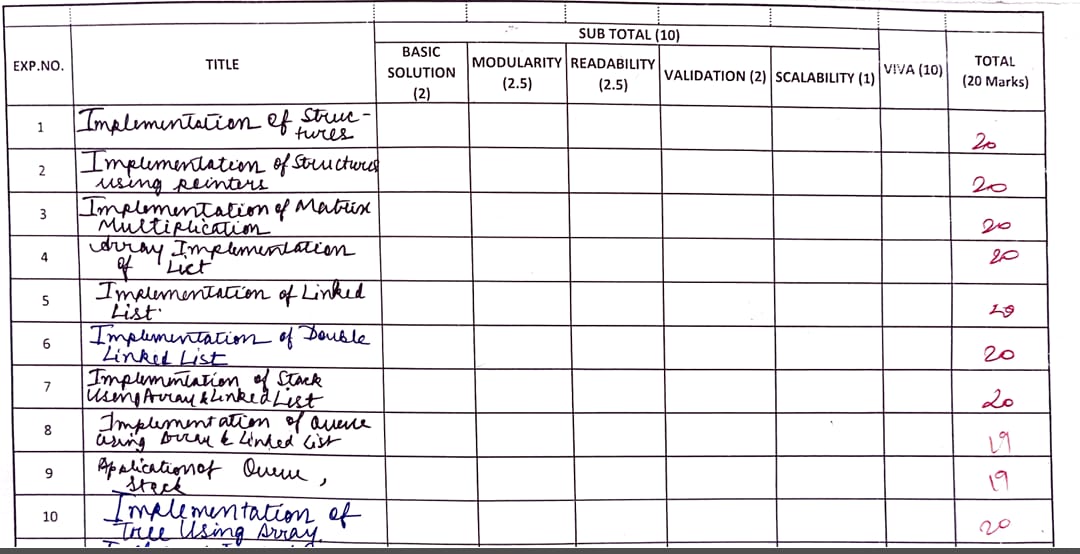 SUB TOTAL (10)
EXP.NO. TITLE BASIC SOLUTION (2) MODULARITY (2.5) READABILITY (2.5) VALIDATION (2) SCALABILITY (1) VIVA (10) TOTAL (20 Marks)
1 Implementation of Struc-
tures 20
2 Implementation of Structures
using pointers 20
3 Implementation of Matrix
Multiplication 20
4 Array Implementation
of List 20
5 Implementation of Linked
List.
6 Implementation of Double
Linked List 20
7 Implementation of Stack
Using Array & Linked List 20
8 Implementation of Queue
using Array & Linked List 19
9 Application of Queue,
Stack 19
10 Implementation of
Tree Using Array. 20